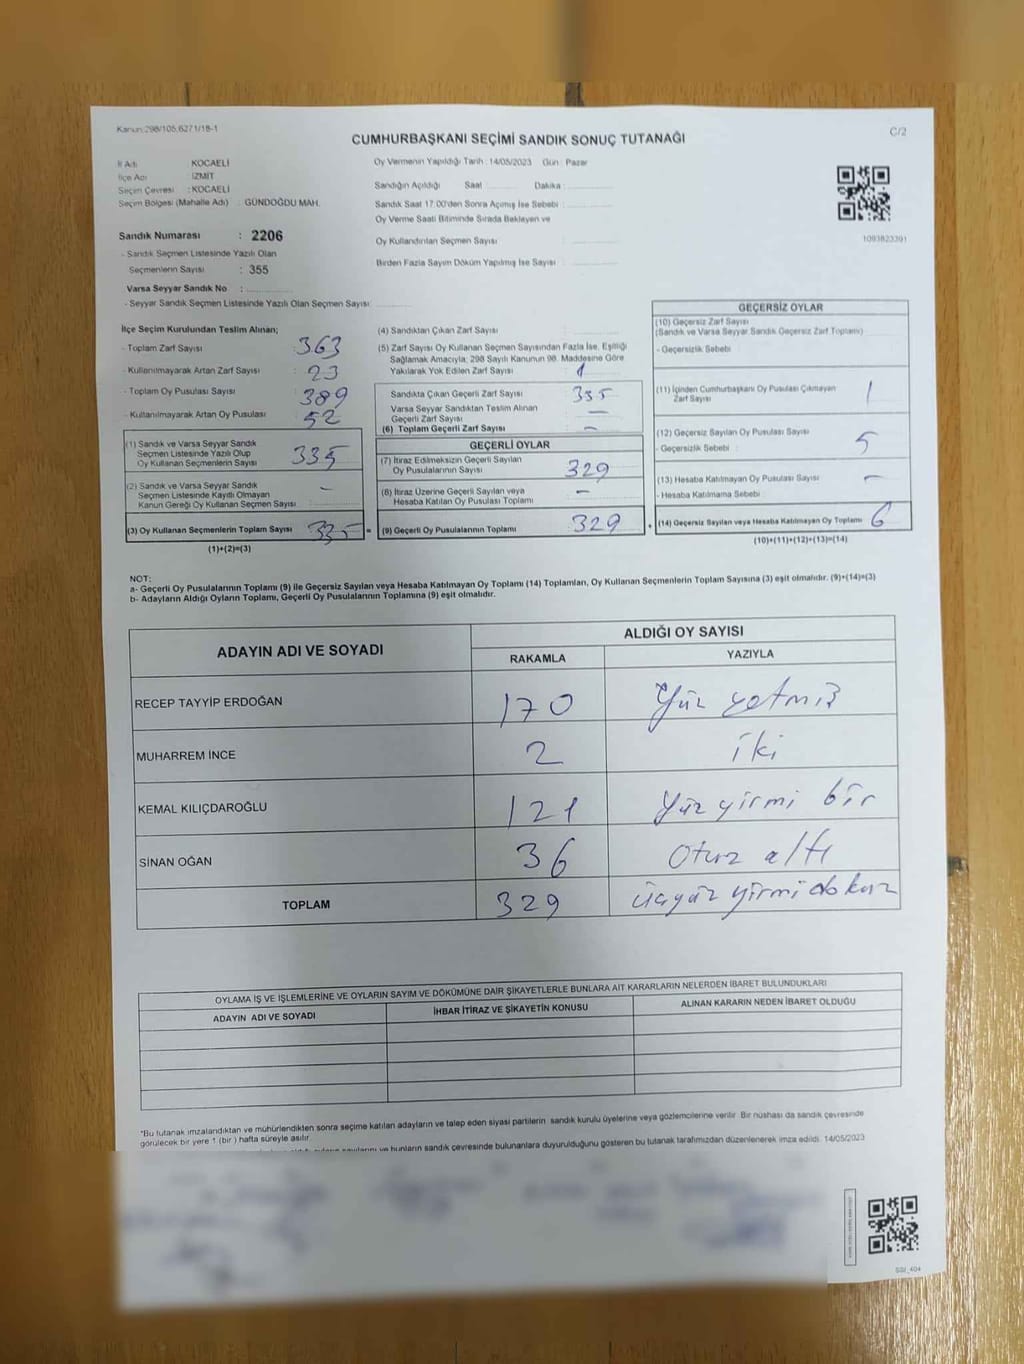 Kanun:298/105,6271/18-1
C/2
CUMHURBAŞKANI SEÇİMİ SANDIK SONUÇ TUTANAĞI
İl Adı : KOCAELİ
İlçe Adı : İZMİT
Seçim Çevresi : KOCAELİ
Seçim Bölgesi (Mahalle Adı) : GÜNDOĞDU MAH.
Sandık Numarası : 2206
- Sandık Seçmen Listesinde Yazılı Olan
Seçmenlerin Sayısı : 355
Varsa Seyyar Sandık No :
- Seyyar Sandık Seçmen Listesinde Yazılı Olan Seçmen Sayısı:
Oy Vermenin Yapıldığı Tarih : 14/05/2023 Gün : Pazar
Sandığın Açıldığı Saat Dakika :
Sandık Saat 17.00'den Sonra Açımış İse Sebebi :
Oy Verme Saati Bitiminde Sırada Bekleyen ve
Oy Kullandırılan Seçmen Sayısı :
Birden Fazla Sayım Döküm Yapılmış İse Sayısı :
1093823391
İlçe Seçim Kurulundan Teslim Alınan;
- Toplam Zarf Sayısı : 363
- Kullanılmayarak Artan Zarf Sayısı : 23
- Toplam Oy Pusulası Sayısı : 389
- Kullanılmayarak Artan Oy Pusulası : 52
(1) Sandık ve Varsa Seyyar Sandık
Seçmen Listesinde Yazılı Olup
Oy Kullanan Seçmenlerin Sayısı 335
(2) Sandık ve Varsa Seyyar Sandık
Seçmen Listesinde Kayıtlı Olmayan
Kanun Gereği Oy Kullanan Seçmen Sayısı : –
(3) Oy Kullanan Seçmenlerin Toplam Sayısı 335 =
(1)+(2)=(3)
(4) Sandıktan Çıkan Zarf Sayısı :
(5) Zarf Sayısı Oy Kullanan Seçmen Sayısından Fazla İse, Eşitliği
Sağlamak Amacıyla; 298 Sayılı Kanunun 98. Maddesine Göre
Yakılarak Yok Edilen Zarf Sayısı : 1
Sandıkta Çıkan Geçerli Zarf Sayısı 335
Varsa Seyyar Sandıktan Teslim Alınan
Geçerli Zarf Sayısı –
(6) Toplam Geçerli Zarf Sayısı –
GEÇERLİ OYLAR
(7) İtiraz Edilmeksizin Geçerli Sayılan
Oy Pusulalarının Sayısı 329
(8) İtiraz Üzerine Geçerli Sayılan veya
Hesaba Katılan Oy Pusulası Toplamı –
(9) Geçerli Oy Pusulalarının Toplamı 329 +
GEÇERSİZ OYLAR
(10) Geçersiz Zarf Sayısı
(Sandık ve Varsa Seyyar Sandık Geçersiz Zarf Toplamı)
- Geçersizlik Sebebi :
(11) İçinden Cumhurbaşkanı Oy Pusulası Çıkmayan
Zarf Sayısı 1
(12) Geçersiz Sayılan Oy Pusulası Sayısı
- Geçersizlik Sebebi : 5
(13) Hesaba Katılmayan Oy Pusulası Sayısı –
- Hesaba Katılmama Sebebi
(14) Geçersiz Sayılan veya Hesaba Katılmayan Oy Toplamı 6
(10)+(11)+(12)+(13)=(14)
NOT:
a- Geçerli Oy Pusulalarının Toplamı (9) ile Geçersiz Sayılan veya Hesaba Katılmayan Oy Toplamı (14) Toplamları, Oy Kullanan Seçmenlerin Toplam Sayısına (3) eşit olmalıdır. (9)+(14)=(3)
b- Adayların Aldığı Oyların Toplamı, Geçerli Oy Pusulalarının Toplamına (9) eşit olmalıdır.
ADAYIN ADI VE SOYADI ALDIĞI OY SAYISI
RAKAMLA YAZIYLA
RECEP TAYYİP ERDOĞAN 170 Yüz yetmiş
MUHARREM İNCE 2 iki
KEMAL KILIÇDAROĞLU 121 Yüz yirmi bir
SİNAN OĞAN 36 Otuz altı
TOPLAM 329 üçyüz yirmi dokuz
OYLAMA İŞ VE İŞLEMLERİNE VE OYLARIN SAYIM VE DÖKÜMÜNE DAİR ŞİKAYETLERLE BUNLARA AİT KARARLARIN NELERDEN İBARET BULUNDUKLARI
ADAYIN ADI VE SOYADI İHBAR İTİRAZ VE ŞİKAYETİN KONUSU ALINAN KARARIN NEDEN İBARET OLDUĞU
*Bu tutanak imzalandıktan ve mühürlendikten sonra seçime katılan adayların ve talep eden siyasi partilerin sandık kurulu üyelerine veya gözlemcilerine verilir. Bir nüshası da sandık çevresinde
görülecek bir yere 1 (bir) hafta süreyle asılır.
ve bunların sandık çevresinde bulunanlara duyurulduğunu gösteren bu tutanak tarafımızdan düzenlenerek imza edildi. 14/05/2023
SSI_404